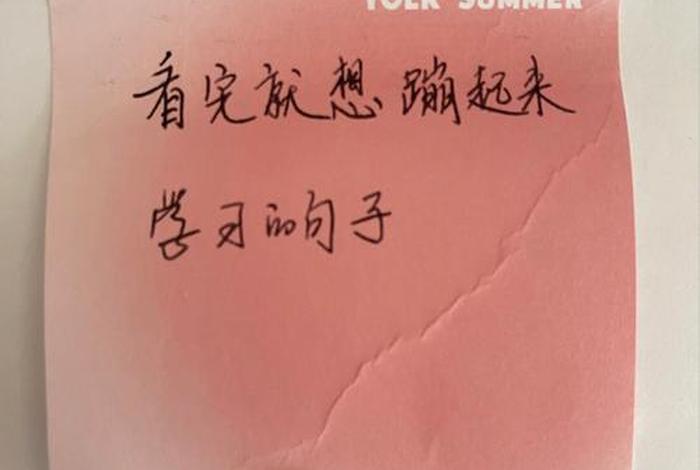 YOLK SUMMER
看完就想蹦起来
学习的句子